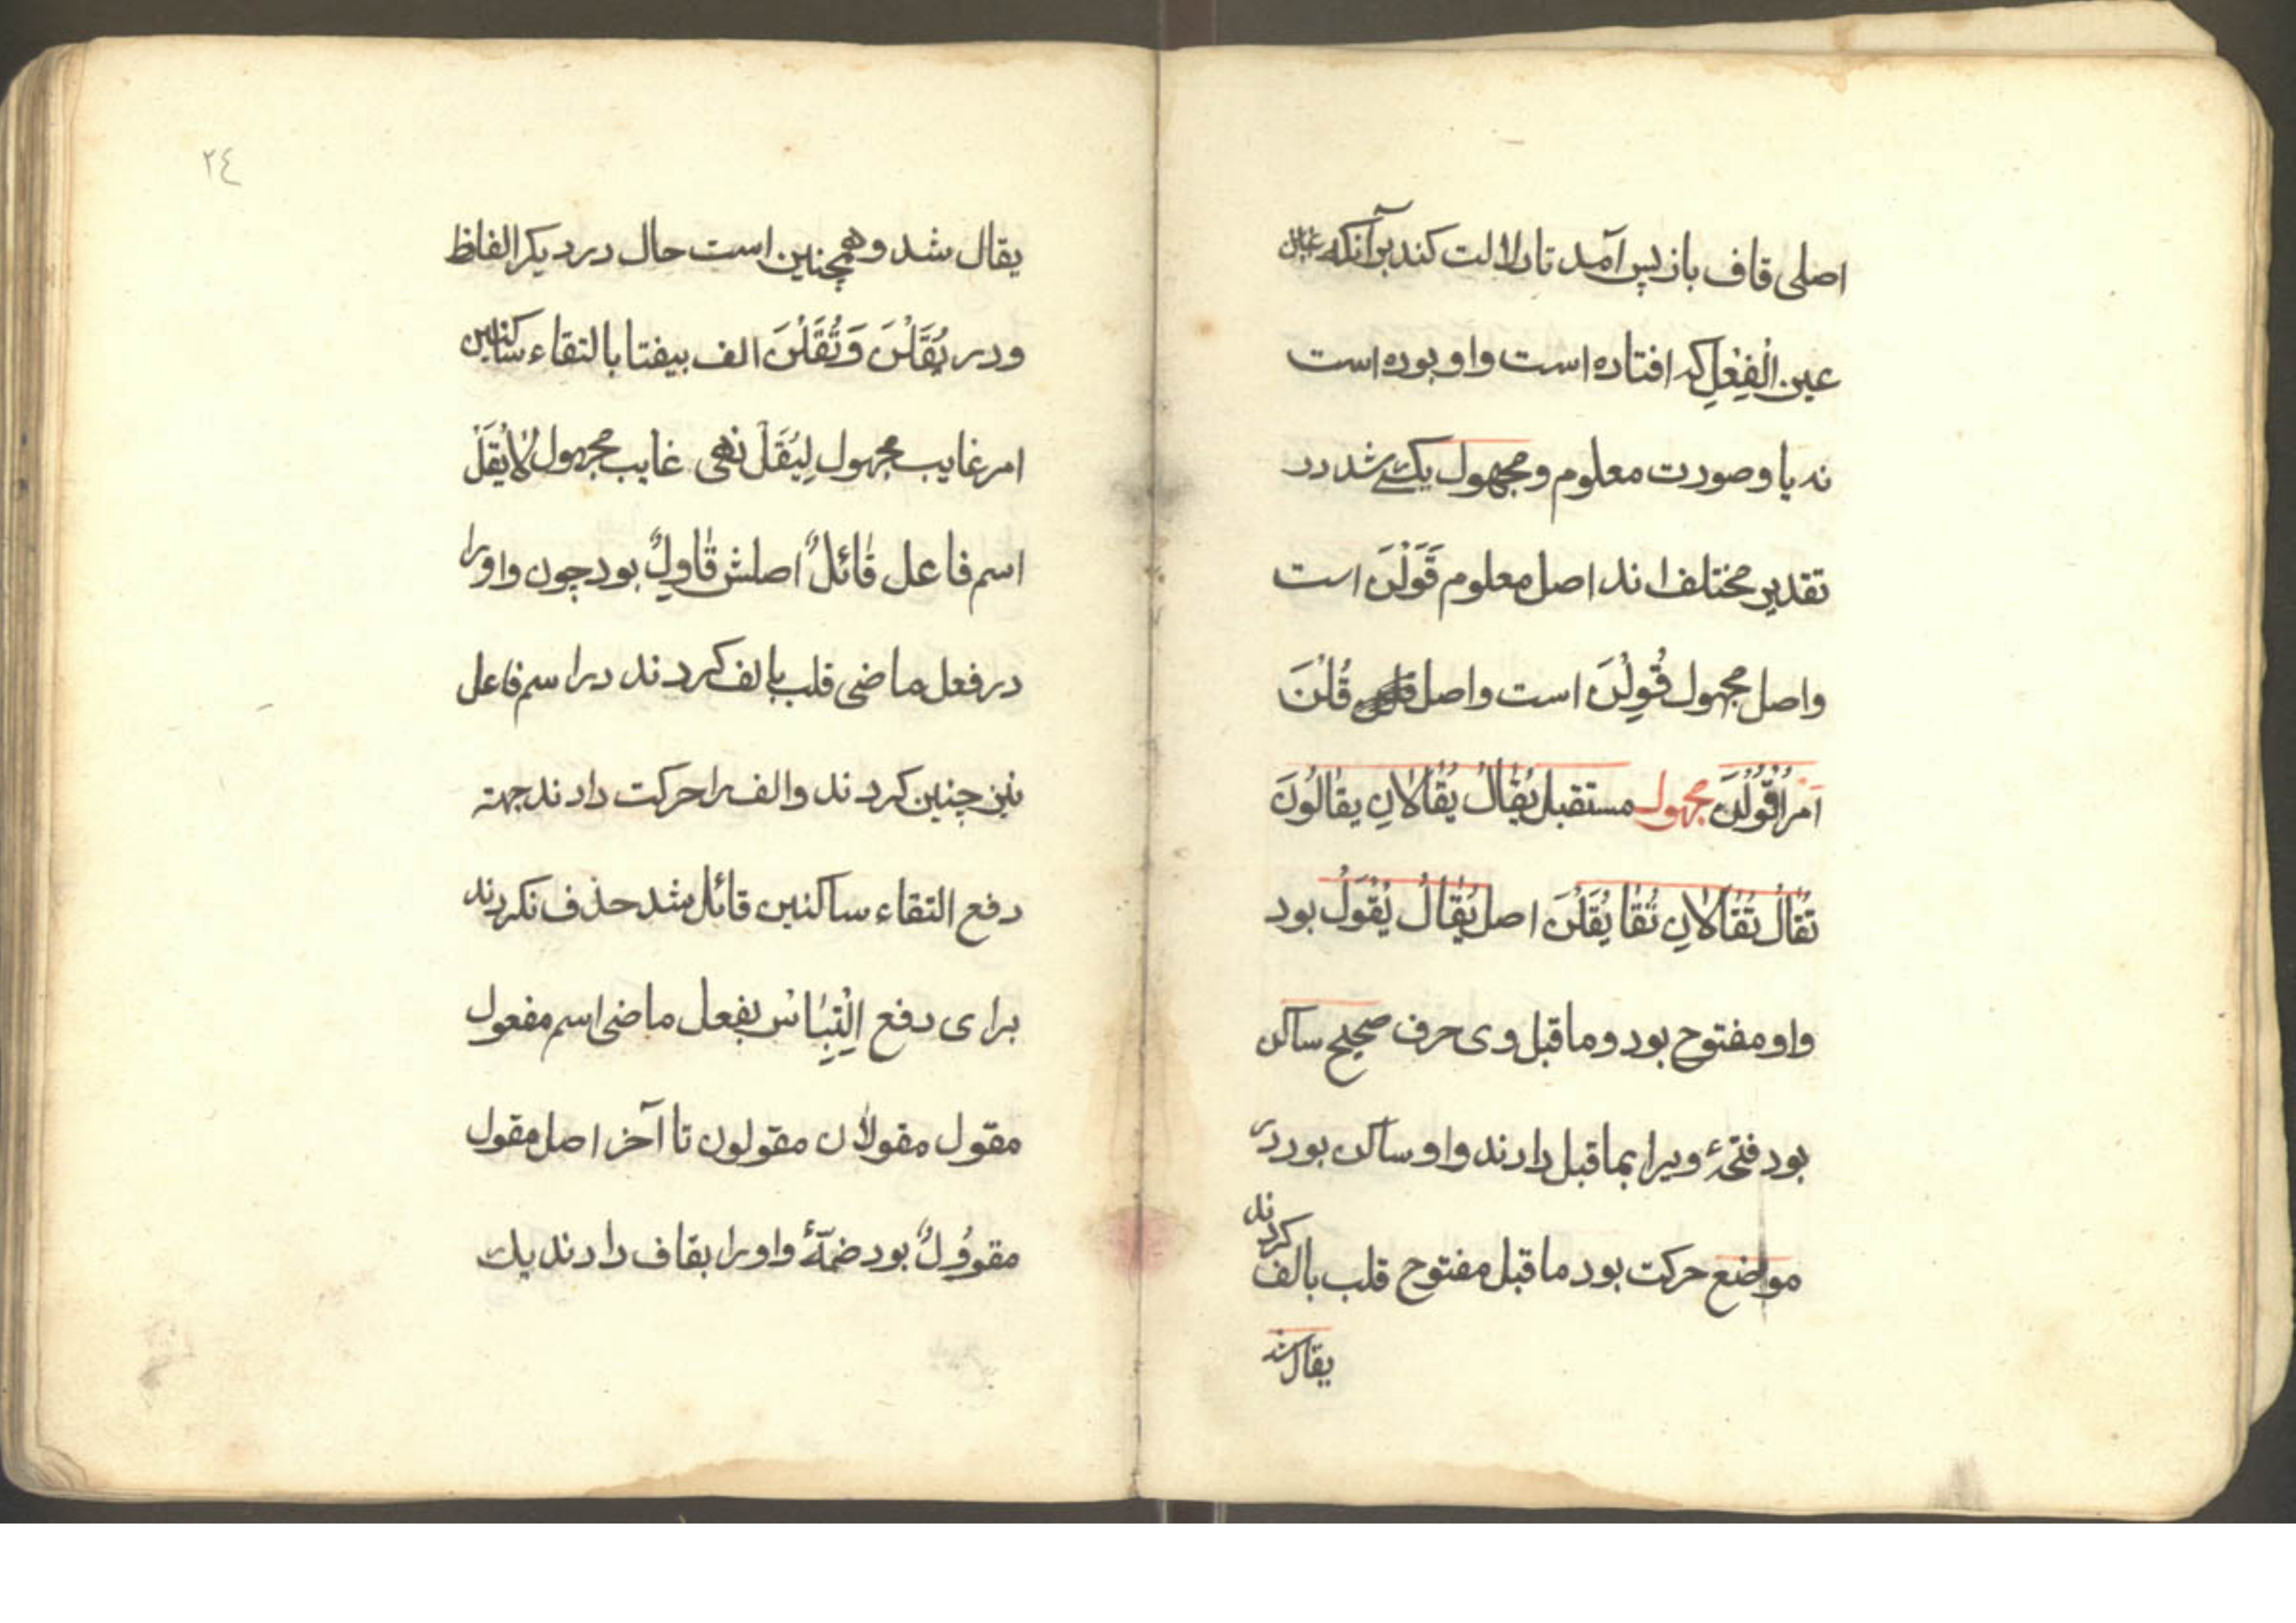 اصلی قاف باز پس آمد تا دلالت کند بر آنکه
عین الْفِعْلِ که افتاده است واو بوده است
نه یا و صورت معلوم و مجهول یکی شد در
تقدیر مختلف اند اصل معلوم قَوَلْنَ است
واصل مجهول قُوِلْنَ است واصل قُلْنَ
امر اُقْوُلْنَ مجهول مستقبل یُقٰالُ یُقٰالاٰنِ یقٰالُونَ
تُقٰالُ تُقٰالاٰنِ تُقٰا یُقَلْنَ اصل یُقٰالُ یُقْوَلُ بود
واو مفتوح بود و ماقبل وی حرف صحیح ساکن
بود فتحهٔ ویرا بماقبل دادند واو ساکن بود در
مواضع حرکت بود ماقبل مفتوح قلب بالف کردند
یقال شد
٢٤
یقال شد و همچنین است حال در دیکر الفاظ
ودر یُقَلْنَ وَتُقَلْنَ الف بیفتا بالتقاء ساکنین
امر غایب مجهول لِیُقَلْ نهی غایب مجهول لاٰیُقَلْ
اسم فاعل قٰائلٌ اصلش قٰاوِلٌ بود چون واو را
در فعل ماضی قلب بالف کردند در اسم فاعل
نیز چنین کردند والف را حرکت دادند جهته
دفع التقاء ساکنین قائل شد حذف نکردند
برای دفع اِلْتِبٰاسْ بفعل ماضی اسم مفعول
مقول مقولاٰن مقولون تا آخر اصل مقول
مقوُولٌ بود ضمّهٔ واو را بقاف دادند یک